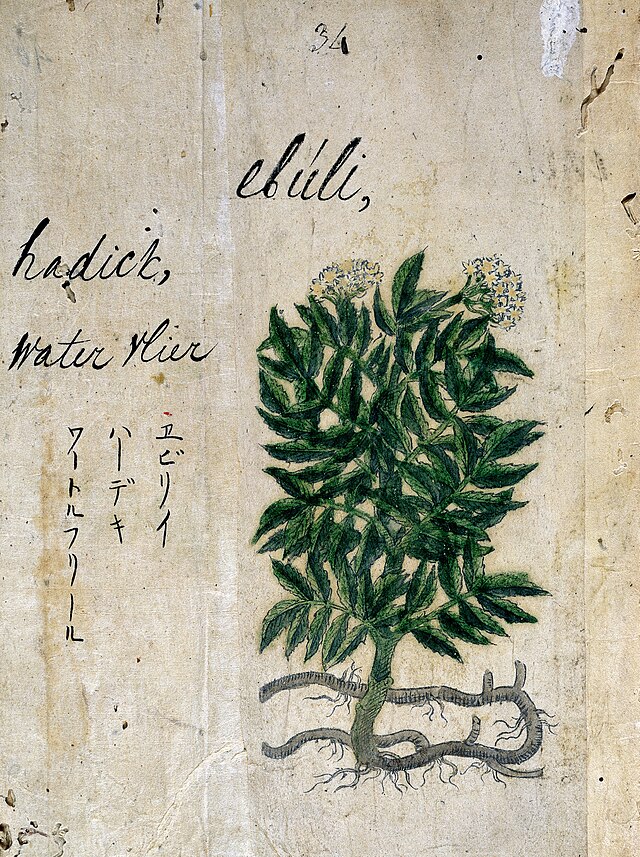 34
ebúli,
hadick,
water vlier
エビリイ
ハーデキ
ワートルフリール